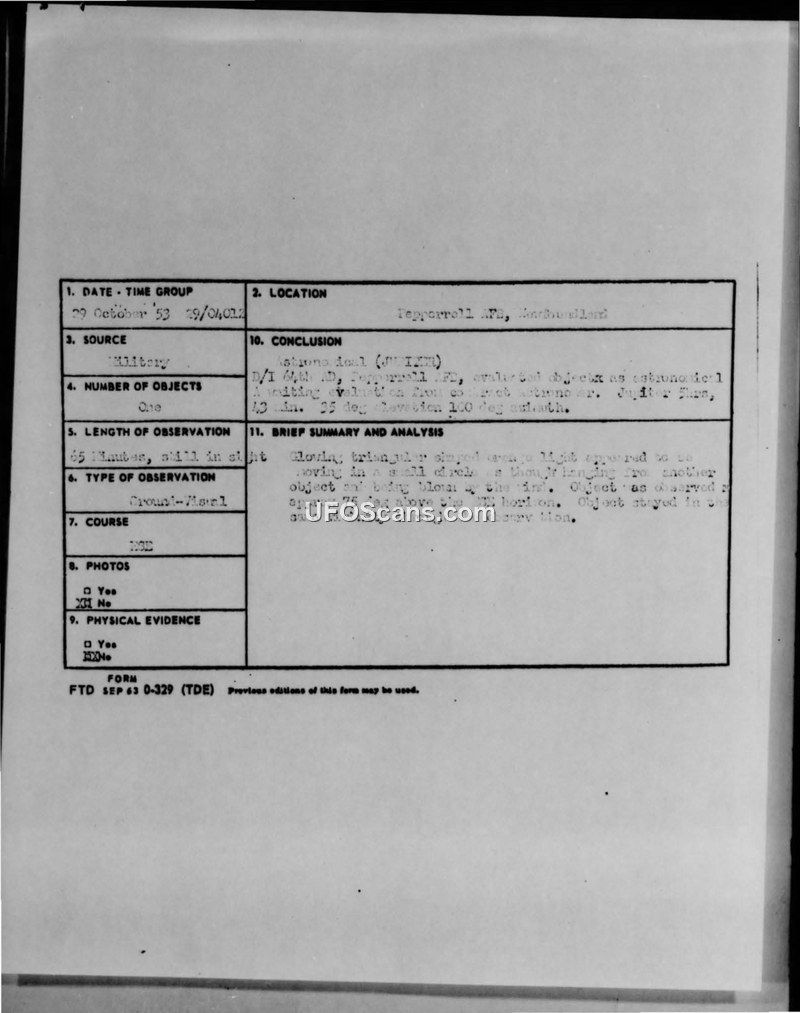 1. DATE - TIME GROUP
29 October 53 29/0401Z
2. LOCATION
Pepperrell AFB, Newfoundland
3. SOURCE
Military
10. CONCLUSION
Astronomical (JUPITER)
D/I 64th AD, Pepperrell AFB, evaluated objects as astronomical
Awaiting evaluation from contract astronomer. Jupiter 5hrs,
43 min. 35 deg elevation 100 deg azimuth.
4. NUMBER OF OBJECTS
One
5. LENGTH OF OBSERVATION
65 Minutes, still in sight
11. BRIEF SUMMARY AND ANALYSIS
Glowing triangular shaped orange light appeared to be
moving in a small circle as though hanging from another
object and being blown by the wind. Object was observed
35 deg above the horizon. Object stayed in the
6. TYPE OF OBSERVATION
Ground-Visual
7. COURSE
ESE
8. PHOTOS
□ Yes
XX No
9. PHYSICAL EVIDENCE
□ Yes
XX No
FORM
FTD SEP 63 0-329 (TDE) Previous editions of this form may be used.
UFOScans.com